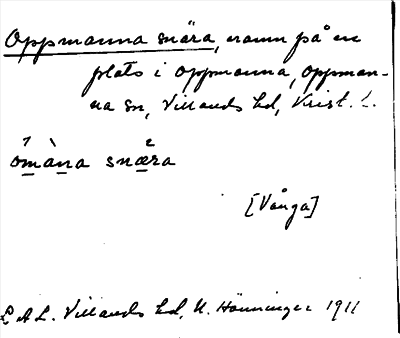 Oppmanna snära, namn på en
plats i Oppmanna, Oppman-
na sn, Villands hd, Krist. L.
òmàna snæra
[Vånga]
L A L. Villands hd, N. Hänninger 1911